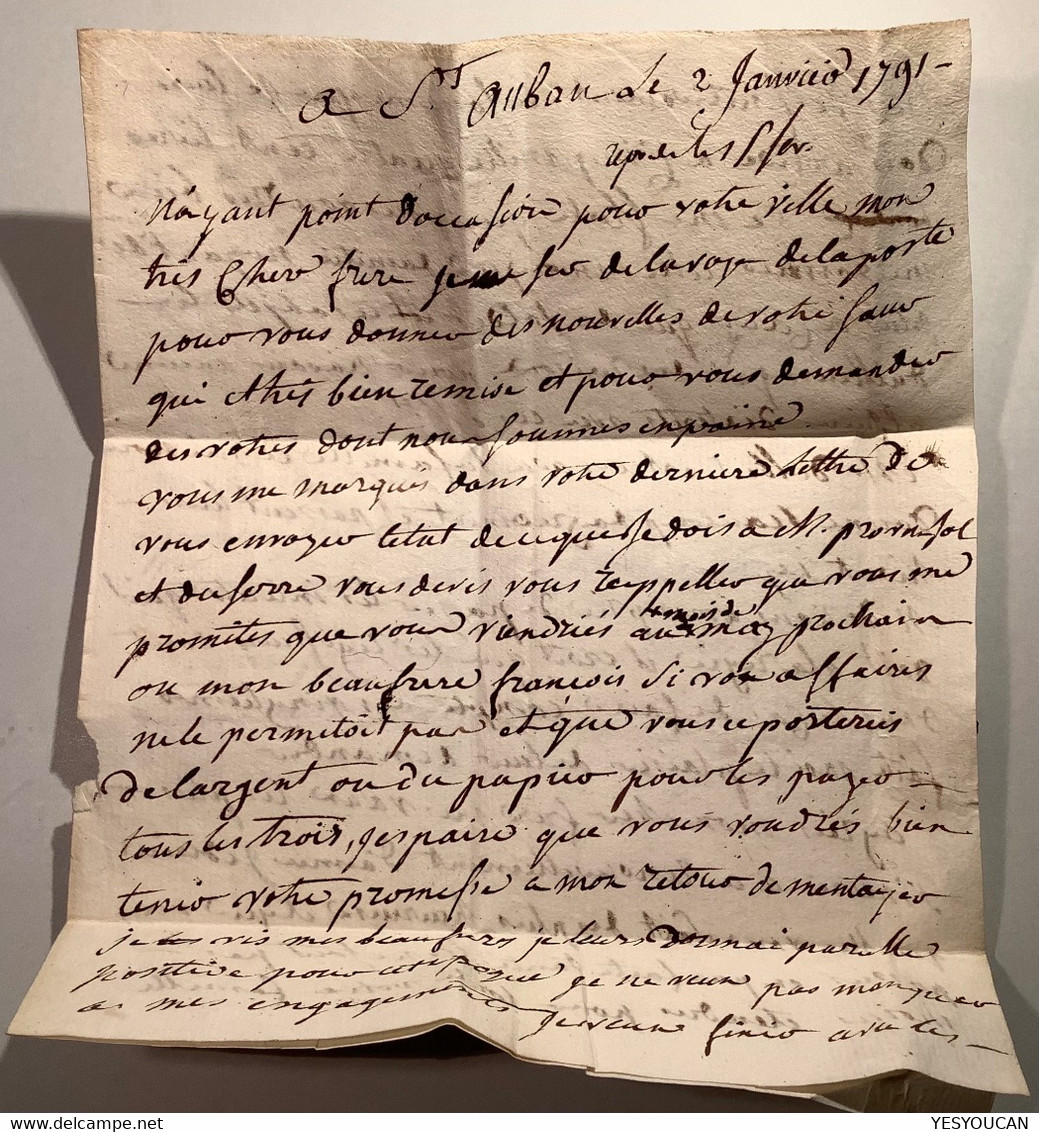 a St Auban Le 2 Janvier 1791 -
Nayant point doccasion pour votre ville mon
tres Cher frere je me ser de la voye de la poste
pour vous donner des nouvelles de votre saeur
qui et tres bien remise et pour vous demander
des votres dont nous sommes en paine.
vous me marques dans votre derniere Lettre de
vous envoyer letat de ce que je dois a M.
et du vous deves vous rappeller que vous me
promites que vous viendriés au mois de may prochain
ou mon beaufrere françois Si vos affaires
ne le permetoit pas et que vous porteries
de largent ou du papier pour les payer
tous les trois, jespaire que vous voudrés bien
tenir votre promesse a mon retour de
je vis mes beaufreres je leurs donnai parolle
positive pour cette je ne veux pas manquer
a mes engagements je veux finir avec les -
YESYOUCAN